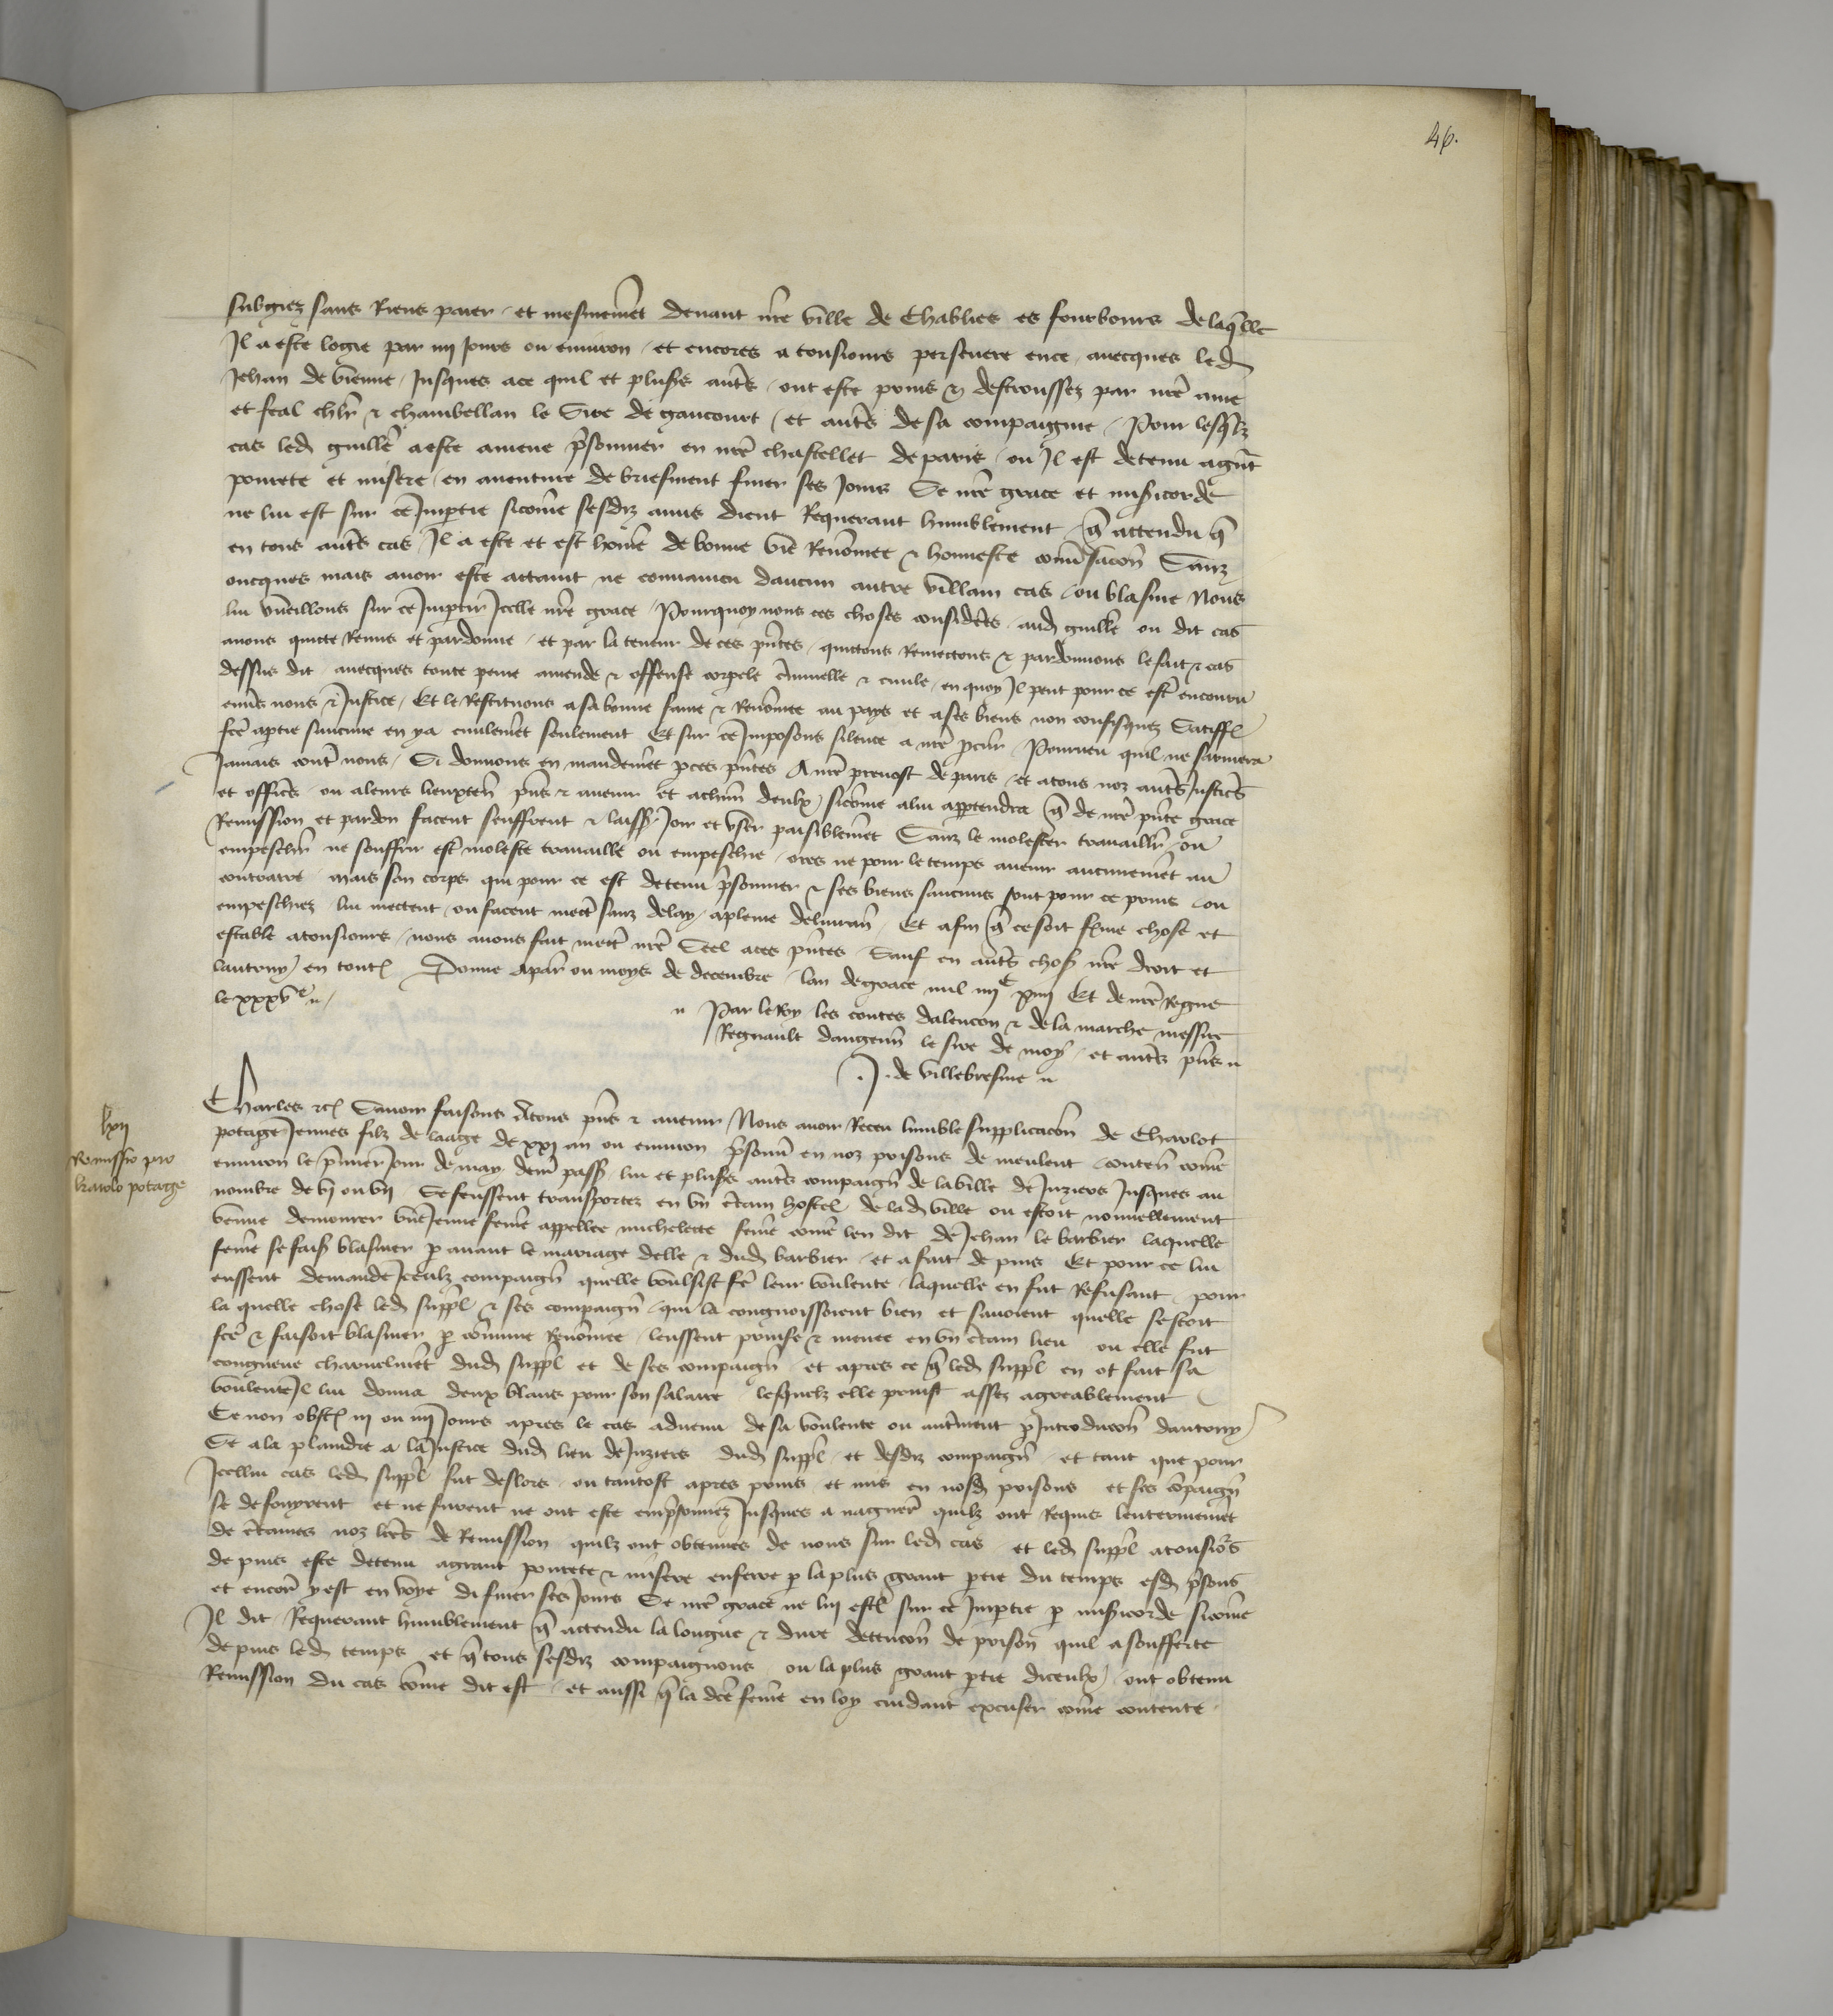 46.
subgiez sans Riens paier / et mesmemēt deuant nr̄e ville de Chablies es fourbours de laq̄lle
Il a este logie par iiij Jours ou enuiron / et encores a tousiours perseuere en ce / auecques led
Jehan de vienne / Jusques ace quil et plus͛s aut͛s / ont este prins & destroussez par nr̄e ame
et feal chlr̄ & chambellan le Sire de gaucourt / et aut͛s de sa compaignie / Pour lesq̄lz
cas led guille͛ a este amene p͛sonnier en nr̄e chastellet de paris / ou Il est detenu agn̄t
pourete et misere / en auenture de briefment finer ses Jours Se nr̄e grace et mis͛icorde
ne lui est sur ce Imp͛tie sicōme sesdiz amis dient Requerant humblement / q̄ attendu q̄
en tous aut͛s cas / Il a este et est hōme de bonne vie Renōmee & honneste conu͛sacōn Sanz
oncques mais auoir este attaint ne conuaincu daucun autre villain cas / ou blasme Nous
lui vueillons sur ce Imp͛tir Icelle nr̄e grace / Pourquoy nous ces choses consider͛s / aud guille͛ ou dit cas
auons quicte Remis et pardonne / et par la teneur de ces pn̄tes / quictons Remectons & pardonnons le fait & cas
dessus dit / auecques toute peine amende & offense corp͛ele c͛iminelle & ciuile / en quoy Il peut pour ce est͛ encouru
enu͛s nous & Justice / Et le Restituons a sa bonne fame & Renōmee au pays et a ses biens non confisquez Satiffc̄
fc̄e a p͛tie saucune en ya ciuilemēt seulement Et sur ce Imposons silence a nr̄e p͛cur͛ / Pourueu quil ne sarmera
Jamais cont͛ nous / Si donnons en mandemēt p͛ ces pn̄tes A nr̄e preuost de paris / et a tous noz aut͛s Justic͛s
et offic͛s / ou a leurs lieuxten̄ pn̄s & auenir / et a chūn deulx / sicōme a lui app͛tendra q̄ de nr̄e pn̄te grace
Remission et pardon facent seuffrent & laiss͛ Joir et vser paisiblemēt Sanz le molester trauaill͛r / ou
empesch͛r ne souffrir est͛ moleste trauaille ou empeschie / ores ne pour le temps auenir aucunemēt au
contraire / mais son corps qui pour ce est detenu p͛sonnier & ses biens saucuns sont pour ce prins / ou
empeschiez lui mectent / ou facent mect͛ sanz delay / a pleine deliuran̄ / Et afin q̄ ce soit f͛me chose et
estable a tousiours / nous auons fait mect͛ nr̄e Seel a ces pn̄tes / Sauf en aut͛s chos͛ nr̄e droit et
lautruy en tout͛ / Donne a par͛ ou moys de decembre / lan de grace mil iiijᶜ xiiij Et de nr̄e Regne
le xxxvᵉ //
Par le Roy les contes dalencon & de la marche messire
Regnault dangenn͛ le sire de moy / et aut͛s pn̄s //
.J. de villebresme //
lxij
Remissio pro
karolo potage
Charles &c͛ Sauoir faisons A tous pn̄s & auenir Nous auoir Receu humble supplicacōn de Charlot
potage Jeunes filz de laage de xxj an ou enuiron p͛sonn͛ en noz prisons de meulent / conten̄ cōme
enuiron le p͛mier Jour de may den͛ pass͛ lui et plus͛s aut͛s compaign̄ de la ville de Juziers Jusques au
nombre de vj ou vij Se feussent transportez en vn c͛tain hostel de lad ville ou estoit nouuellement
venue demourer vne Jeune feme appellee michelette feme cōme len dit de Jehan le barbier laquelle
feme se fais͛ blasmer p͛auant le mariage delle & dud barbier / et a fait de puis Et pour ce lui
eussent demande Iceulx compaign̄ quelle voulsist fe͛ leur voulente / laquelle en fut Refusant / pour
la quelle chose led suppl͛ & ses compaign̄ / qui la congnoissoient bien et sauoient quelle sestoit
fc̄e & faisoit blasmer p͛ cōmune Renōmee / leussent prinse & menee en vn c͛tain lieu ou elle fut
congneue charnelmēt dud suppl͛ et de ses compaign̄ / et apres ce q̄ led suppl͛ en ot fait sa
voulente Il lui donna deux blans pour son salaire lesquelz elle prinst assez agreablement
Ce non obst͛ iij ou iiij Jours apres le cas aduenu de sa voulente ou aut͛ment p͛ Introducōn dautruy
Se ala plaindre a la Justice dud lieu de Juziers dud suppl͛ et desdiz compaign̄ / et tant que pour
Icellui cas led suppl͛ fut deslors / ou tantost apres prins / et mis en nosd prisons et ses cōpaign̄
se defouyrent et ne furent ne ont este emp͛sonnez Jusques a naguer͛ quilz ont Requis lenterinemēt
de c͛taines noz lr͛es de Remission quilz ont obtenues de nous sur led cas / et led suppl͛ a tousio͛s
de puis este detenu a grant pourete & misere enferre p͛ la plus grant p͛tie du temps esd p͛sons
et encor͛ y est en voye di finer ses Jours Se nr̄e grace ne lui est͛ sur ce Imp͛tie p͛ mis͛icorde sicōme
Il dit Requerant humblement q̄ attendu la longue & dure detencōn de prison quil a soufferte
de puis led temps et q̄ tous sesdiz compaignons / ou la plus grant p͛tie diceulx / ont obtenu
Remission du cas cōme dit est / et aussi q̄ la dc̄e feme en soy cuidant excuser cōme contente